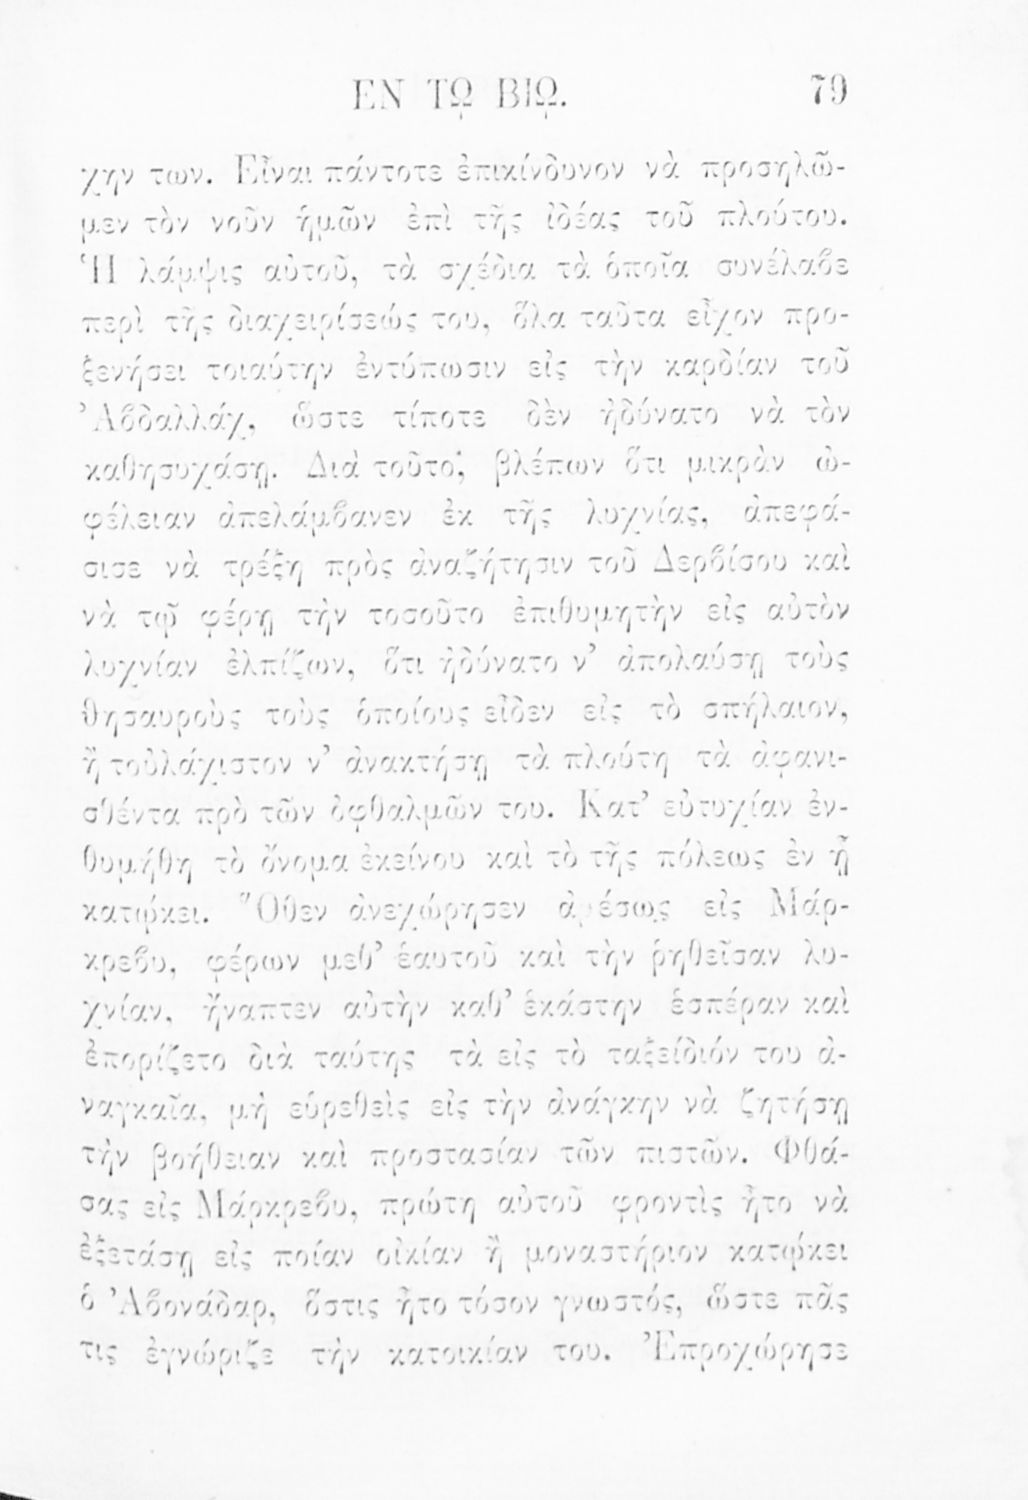 ΕΝ Τῼ ΒΙῼ. 79
χην των. Εἶναι πάντοτε ἐπικίνδυνον νὰ προσηλῶ-
μεν τὸν νοῦν ἡμῶν ἐπὶ τῆς ἰδέας τοῦ πλούτου.
Ἡ λάμψις αὐτοῦ, τὰ σχέδια τὰ ὁποῖα συνέλαβε
περὶ τῆς διαχειρίσεώς του, ὅλα ταῦτα εἶχον προ-
ξενήσει τοιαύτην ἐντύπωσιν εἰς τὴν καρδίαν τοῦ
Ἀβδαλλάχ, ὥστε τίποτε δὲν ἠδύνατο νὰ τὸν
καθησυχάσῃ. Διὰ τοῦτο, βλέπων ὅτι μικρὰν ὠ-
φέλειαν ἀπελάμβανεν ἐκ τῆς λυχνίας, ἀπεφά-
σισε νὰ τρέξῃ πρὸς ἀναζήτησιν τοῦ Δερβίσου καὶ
νὰ τῷ φέρῃ τὴν τοσοῦτο ἐπιθυμητὴν εἰς αὐτὸν
λυχνίαν ἐλπίζων, ὅτι ἠδύνατο ν’ ἀπολαύσῃ τοὺς
θησαυροὺς τοὺς ὁποίους εἶδεν εἰς τὸ σπήλαιον,
ἢ τοὐλάχιστον ν’ ἀνακτήσῃ τὰ πλούτη τὰ ἀφανι-
σθέντα πρὸ τῶν ὀφθαλμῶν του. Κατ’ εὐτυχίαν ἐν-
θυμήθη τὸ ὄνομα ἐκείνου καὶ τὸ τῆς πόλεως ἐν ᾗ
κατῴκει. Ὅθεν ἀνεχώρησεν ἀμέσως εἰς Μάρ-
κρεβυ, φέρων μεθ’ ἑαυτοῦ καὶ τὴν ῥηθεῖσαν λυ-
χνίαν, ἤναπτεν αὐτὴν καθ’ ἑκάστην ἑσπέραν καὶ
ἐπορίζετο διὰ ταύτης τὰ εἰς τὸ ταξείδιόν του ἀ-
ναγκαῖα, μὴ εὑρεθεὶς εἰς τὴν ἀνάγκην νὰ ζητήσῃ
τὴν βοήθειαν καὶ προστασίαν τῶν πιστῶν. Φθά-
σας εἰς Μάρκρεβυ, πρώτη αὐτοῦ φροντὶς ἦτο νὰ
ἐξετάσῃ εἰς ποίαν οἰκίαν ἢ μοναστήριον κατῴκει
ὁ Ἀβονάδαρ, ὅστις ἦτο τόσον γνωστός, ὥστε πᾶς
τις ἐγνώριζε τὴν κατοικίαν του. Ἐπροχώρησε